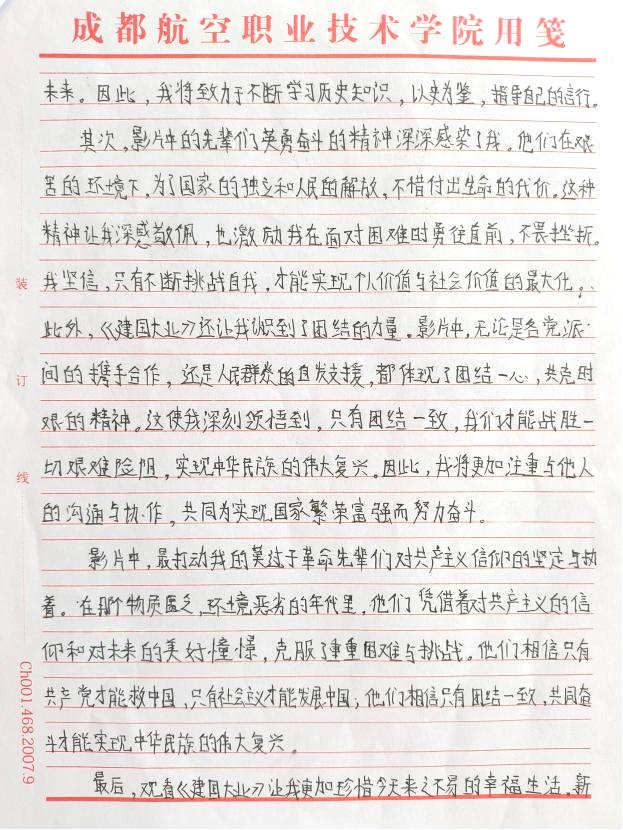 成都航空职业技术学院用笺
未来。因此，我将致力于不断学习历史知识，以史为鉴，指导自己的言行。
其次，影片中的先辈们英勇奋斗的精神深深感染了我。他们在艰
苦的环境下，为了国家的独立和人民的解放，不惜付出生命的代价。这种
精神让我深感敬佩，也激励我在面对困难时勇往直前，不畏挫折。
我坚信，只有不断挑战自我，才能实现个人价值与社会价值的最大化。
此外，《建国大业》还让我认识到了团结的力量。影片中，无论是各党派
间的携手合作，还是人民群众的自发支援，都体现了团结一心，共克时
艰的精神。这使我深刻领悟到，只有团结一致，我们才能战胜一
切艰难险阻，实现中华民族的伟大复兴。因此，我将更加注重与他人
的沟通与协作，共同为实现国家繁荣富强而努力奋斗。
影片中，最打动我的莫过于革命先辈们对共产主义信仰的坚定与执
着。在那个物质匮乏，环境恶劣的年代里，他们凭借着对共产主义的信
仰和对未来的美好憧憬，克服了重重困难与挑战。他们相信只有
共产党才能救中国，只有社会主义才能发展中国；他们相信只有团结一致，共同奋
斗才能实现中华民族的伟大复兴。
最后，观看《建国大业》让我更加珍惜今天来之不易的幸福生活。新
装
订
线
Ch001.468.2007.9